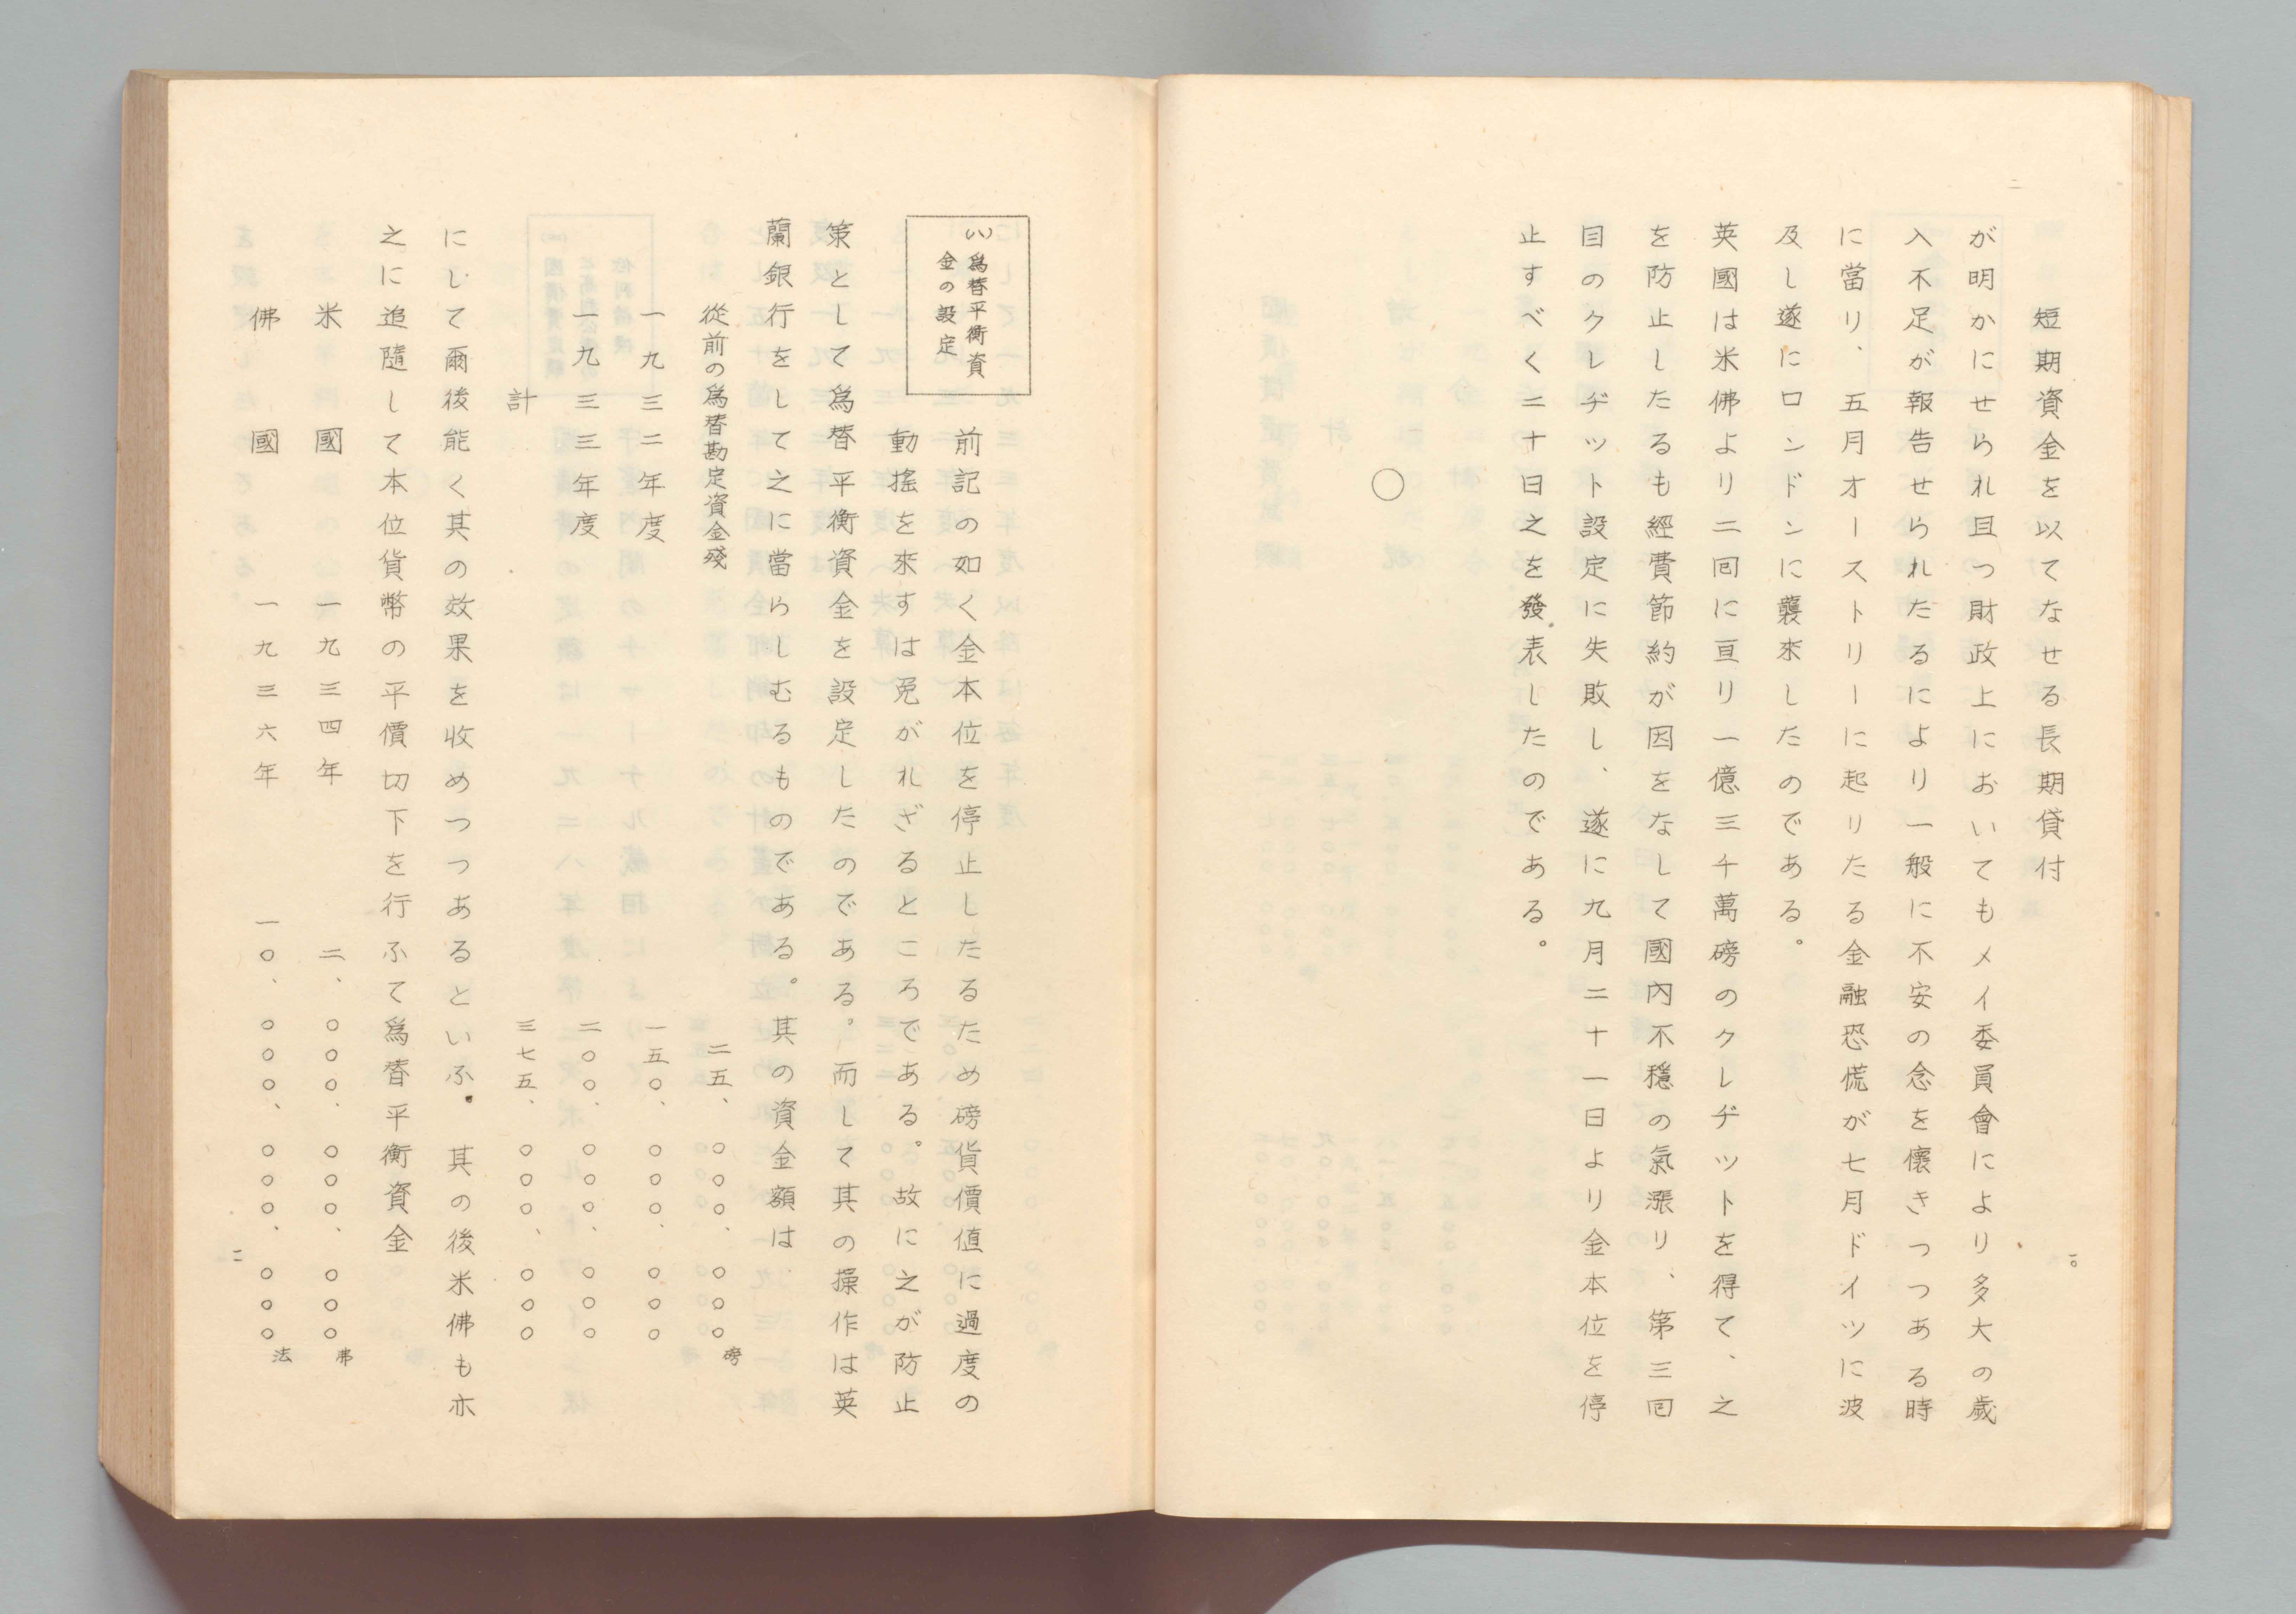 短期資金を以てなせる長期貸付
が明かにせられ且つ財政上においてもメイ委員會により多大の歳
入不足が報告せられたるにより一般に不安の念を懷きつつある時
に當り、五月オーストリーに起りたる金融恐慌が七月ドイツに波
及し遂にロンドンに襲來したのである。
英國は米佛より二回に亘り一億三千萬磅のクレヂットを得て、之
を防止したるも經費節約が因をなして國內不穩の氣漲り、第三回
目のクレヂット設定に失敗し、遂に九月二十一日より金本位を停
止すべく二十日之を發表したのである。
○
一〇
(ハ)爲替平衡資
金の設定
前記の如く金本位を停止したるため磅貨價値に過度の
動搖を來すは免がれざるところである。故に之が防止
策として爲替平衡資金を設定したのである。而して其の操作は英
蘭銀行をして之に當らしむるものである。其の資金額は
從前の爲替勘定資金殘 二五、〇〇〇、〇〇〇磅
一九三二年度 一五〇、〇〇〇、〇〇〇
一九三三年度 二〇〇、〇〇〇、〇〇〇
計 三七五、〇〇〇、〇〇〇
にして爾後能く其の效果を收めつつあるといふ。其の後米佛も亦
之に追隨して本位貨幣の平價切下を行ふて爲替平衡資金
米國 一九三四年 二、〇〇〇、〇〇〇、〇〇〇弗
佛國 一九三六年 一〇、〇〇〇、〇〇〇、〇〇〇法
一一